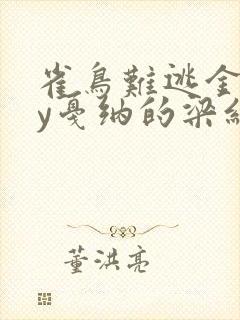 雀鳥難逃金
y戛纳的梁絲
董洪亮